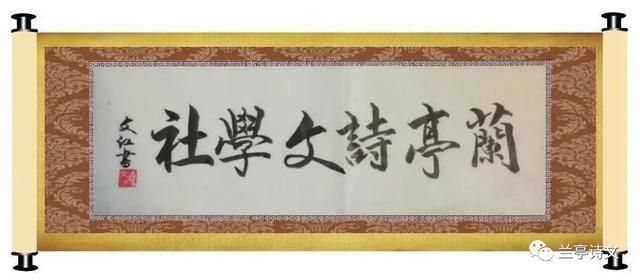 蘭亭詩文學社
文紅書
兰亭诗文